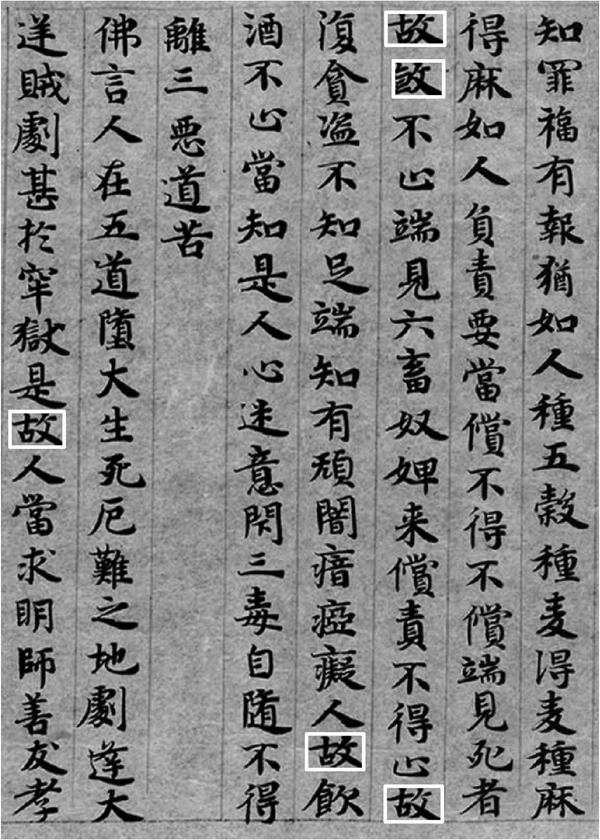 知罪福有報猶如人種五穀種麦得麦種麻
得麻如人負責要當償不得不償端見死者
故煞不止端見六畜奴婢来償責不得止故
復貪盗不知足端知有頑闇瘖瘂癡人故飲
酒不止當知是人心迷意閇三毒自墮不得
離三悪道苦
佛言人在五道墮大生死厄難之地劇逢大
逆賊劇甚於牢獄是故人當求明師善友孝